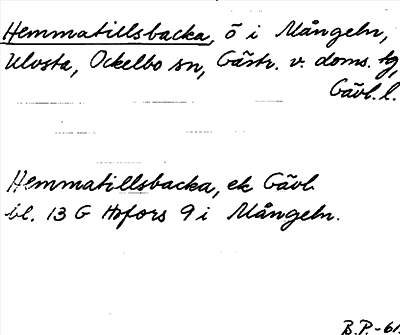 Hemmatillsbacka, ö i Mångeln,
Ulvsta, Ockelbo sn, Gästr. v. doms. tg,
Gävl. l.
Hemmatillsbacka, ek Gävl.
bl. 13 G Hofors 9 i Mångeln.
B.P.-61.